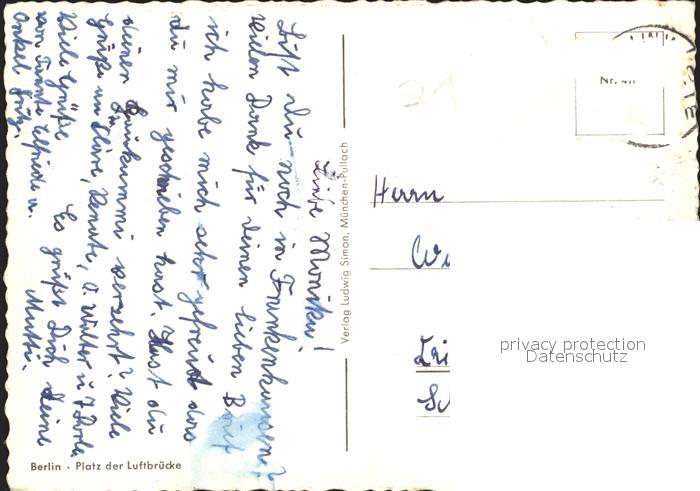 Liebe Monika!
Bist du noch in Frankenhausen?
vielen Dank für deinen lieben Brief
ich habe mich sehr gefreut das
du mir geschrieben hast. Hast du
deinen Kaukummi verzehrt? Viele
Grüße an Renate, O. Walter u. T.
Es grüßt Dich deine
Mutti.
Viele Grüße
von Tante Elfriede u.
Onkel Fritz.
Berlin · Platz der Luftbrücke
Verlag Ludwig Simon, München-Pullach
21
Nr.
Herrn
privacy protection
Datenschutz